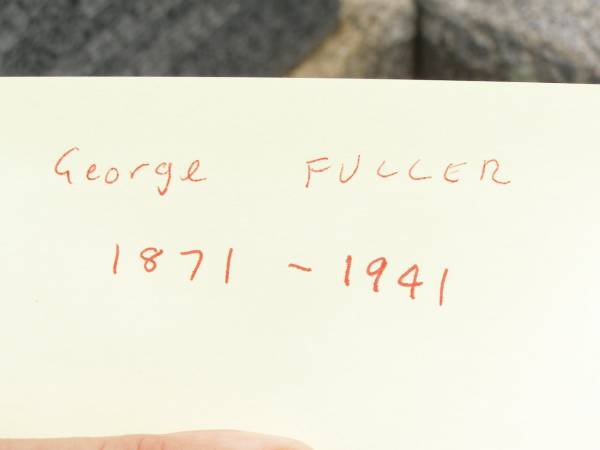 George FULLER
1871 ~ 1941